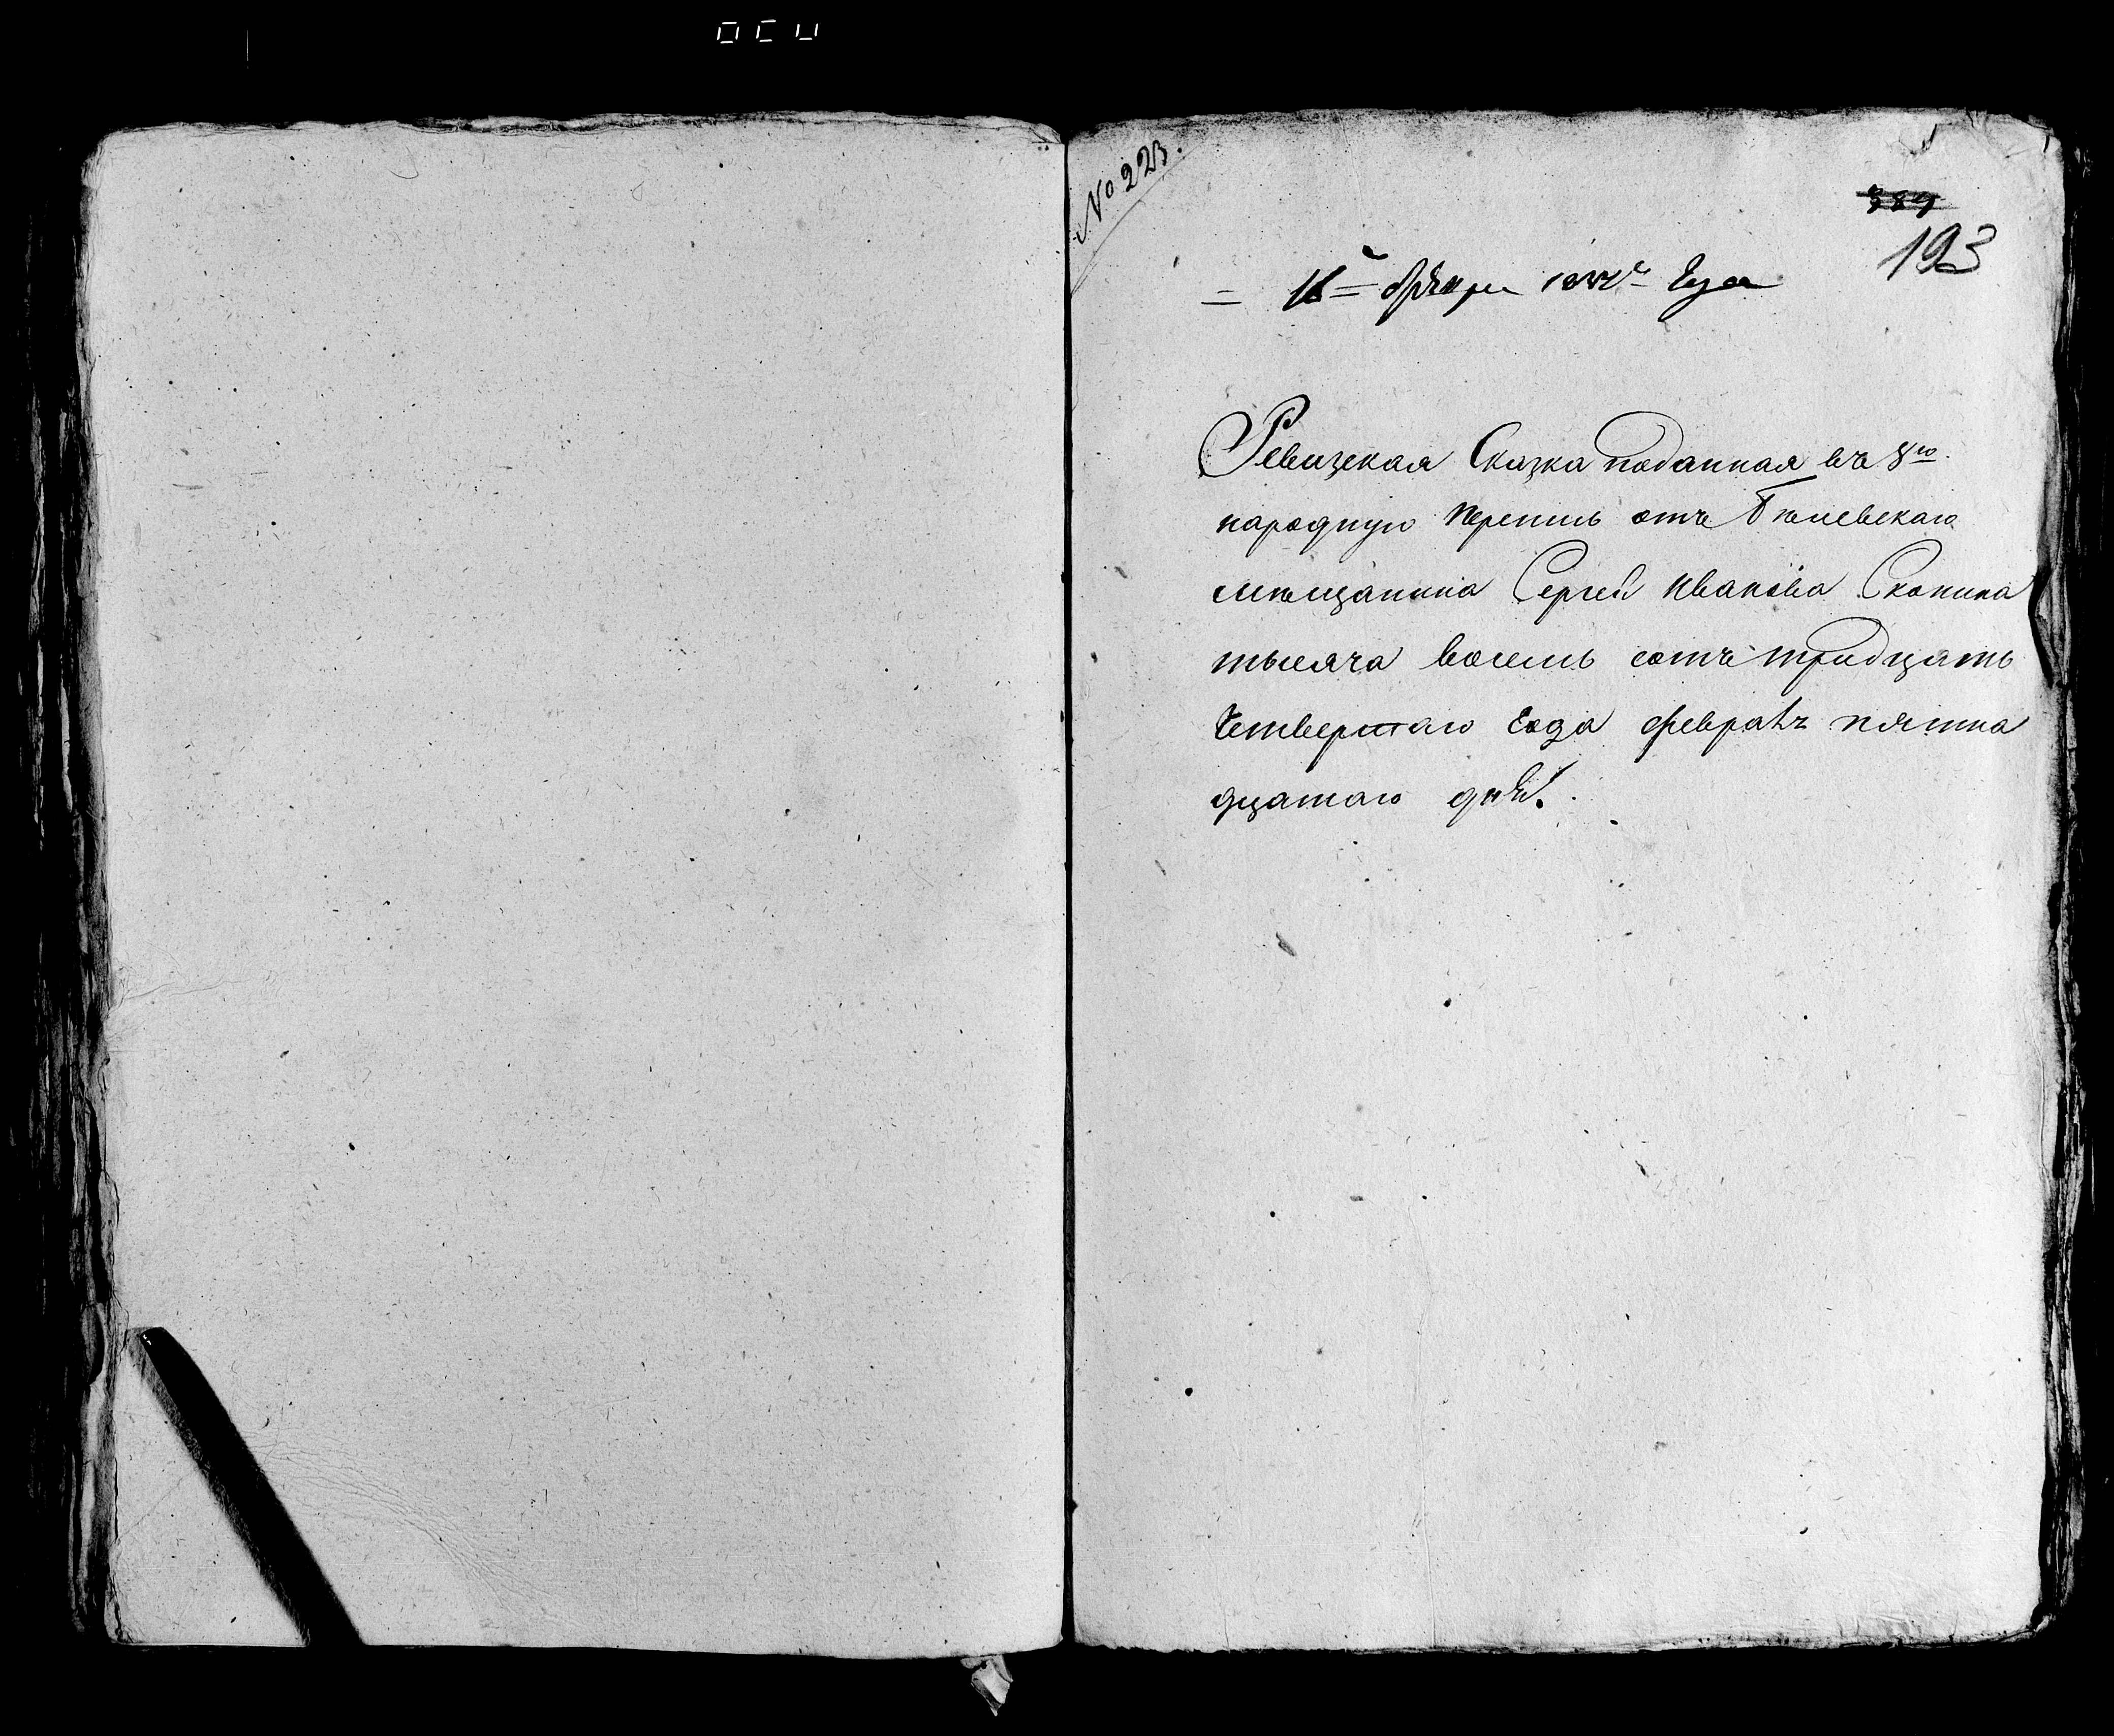 No 223.
389
193
16 февраля 1834 года
Ревизская Сказка поданная въ 8ю
народную перепись отъ Белевскаго
мещанина Сергея Иванова Скопина
тысяча восемь сотъ тридцать
Четвертаго Года февраля пятна
дцатаго дня.